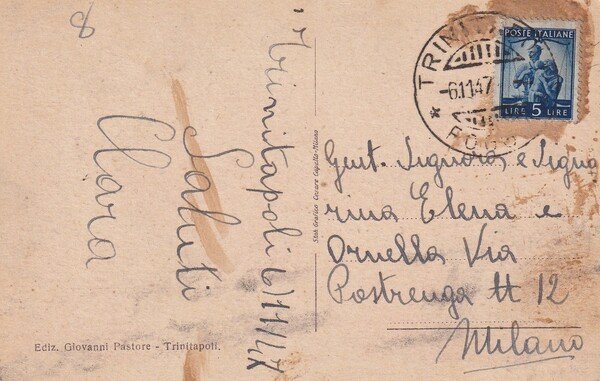 8
Trinitapoli 6/11/47
Saluti
Clara
Ediz. Giovanni Pastore - Trinitapoli.
Stab. Grafico Cesare Capello-Milano
TRINITA
-6.11.47
FOGG
POSTE ITALIANE
LIRE 5 LIRE
Gent. Signora e Signo
rina Elena e
Ornella Via
Postrenga N 12
Milano